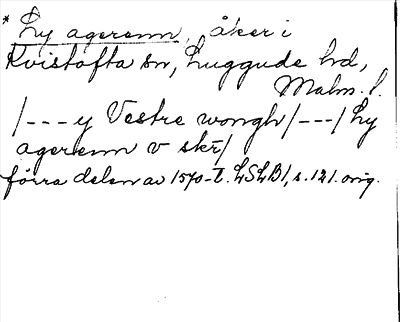 * Ly agerenn, åker i
Kvistofta sn, Luggude hd,
Malm. l.
/---y Vestre wongh/---/Ly
agerenn v skr/
förra delen av 1570-t. LSLB1, s. 121. orig.